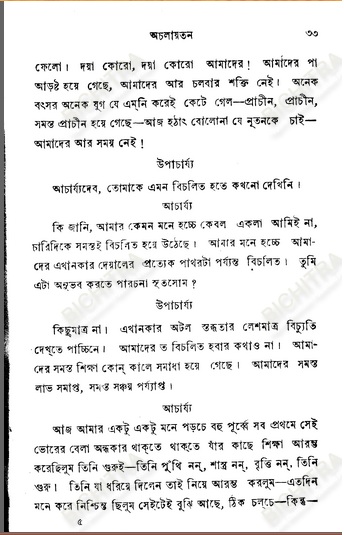 অচলায়তন ৩৩
ফেলো। দয়া কোরো, দয়া কোরো আমাদের! আমাদের পা
আড়ষ্ট হয়ে গেছে, আমাদের আর চলবার শক্তি নেই। অনেক
বৎসর অনেক যুগ যে এম্‌নি করেই কেটে গেল—প্রাচীন, প্রাচীন,
সমস্ত প্রাচীন হয়ে গেছে—আজ হঠাৎ বোলোনা যে নূতনকে চাই—
আমাদের আর সময় নেই!
উপাচার্য্য
আচার্য্যদেব, তোমাকে এমন বিচলিত হতে কখনো দেখিনি।
আচার্য্য
কি জানি, আমার কেমন মনে হচ্চে কেবল একলা আমিই না,
চারিদিকে সমস্তই বিচলিত হয়ে উঠেছে। আমার মনে হচ্চে আমা-
দের এখানকার দেয়ালের প্রত্যেক পাথরটা পর্য্যন্ত বিচলিত। তুমি
এটা অনুভব করতে পারচনা সূতসোম?
উপাচার্য্য
কিছুমাত্র না। এখানকার অটল স্তব্ধতার লেশমাত্র বিচ্যুতি
দেখ্‌তে পাচ্চিনে। আমাদের ত বিচলিত হবার কথাও না। আমা-
দের সমস্ত শিক্ষা কোন্ কালে সমাধা হয়ে গেছে। আমাদের সমস্ত
লাভ সমাপ্ত, সমস্ত সঞ্চয় পর্য্যাপ্ত।
আচার্য্য
আজ আমার একটু একটু মনে পড়চে বহু পূর্ব্বে সব প্রথমে সেই
ভোরের বেলা অন্ধকার থাক্‌তে থাক্‌তে যাঁর কাছে শিক্ষা আরম্ভ
করেছিলুম তিনি গুরুই—তিনি পুঁথি নন্, শাস্ত্র নন্, বৃত্তি নন্, তিনি
গুরু। তিনি যা ধরিয়ে দিলেন তাই নিয়ে আরম্ভ করলুম—এতদিন
মনে করে নিশ্চিন্ত ছিলুম সেইটেই বুঝি আছে, ঠিক চল্‌চে—কিন্তু—
৫
BICHITRA